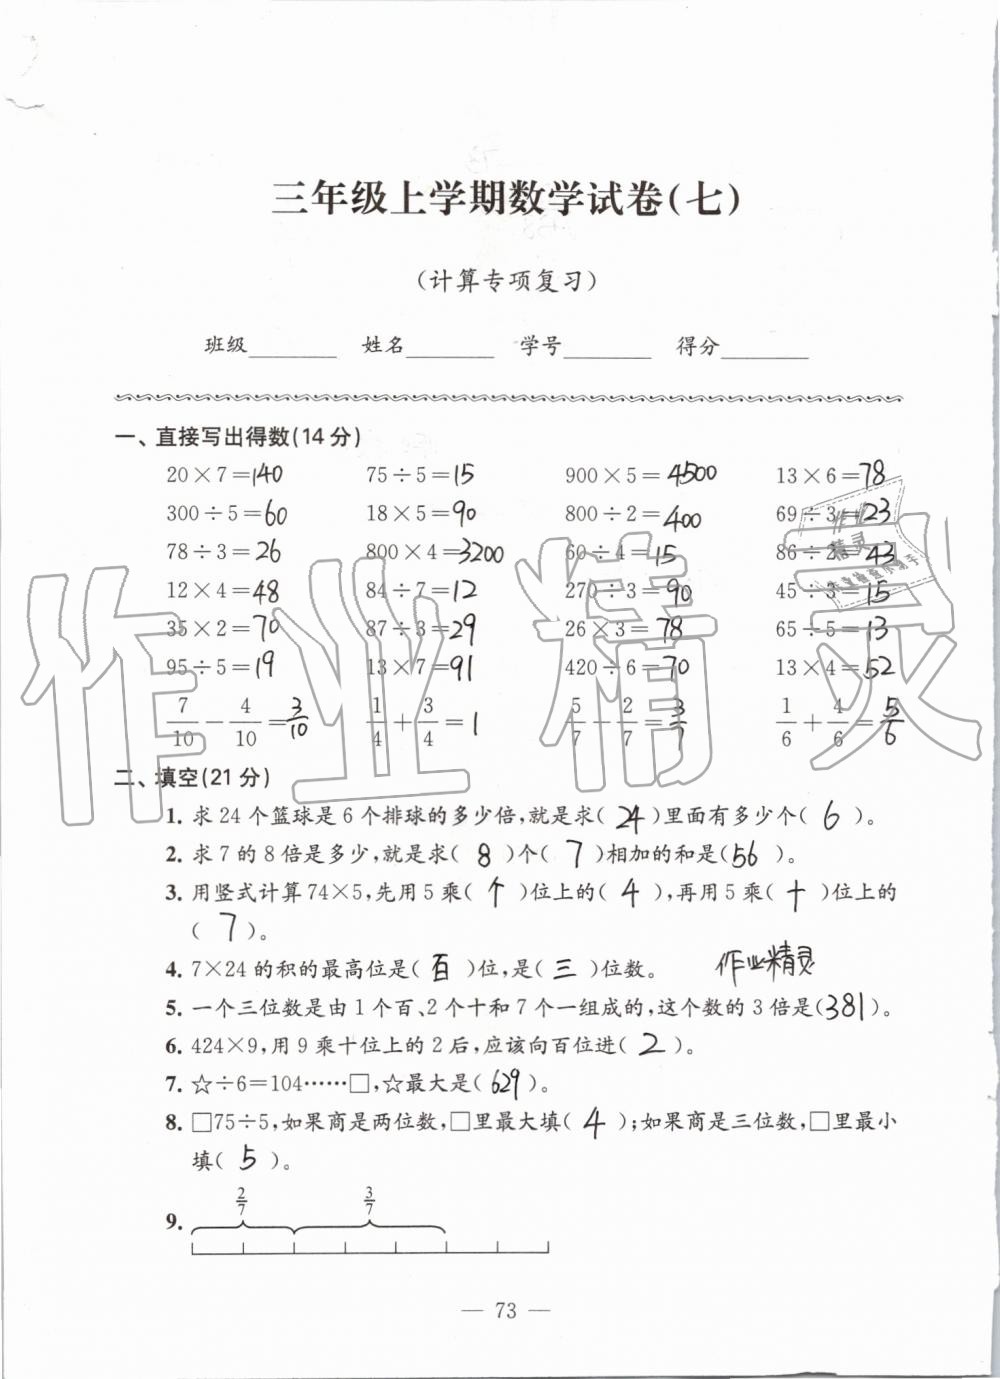 三年级上学期数学试卷(七)
(计算专项复习)
班级________ 姓名________ 学号________ 得分________
一、直接写出得数(14分)
20×7=140 75÷5=15 900×5=4500 13×6=78
300÷5=60 18×5=90 800÷2=400 69÷3=23
78÷3=26 800×4=3200 60÷4=15 86÷2=43
12×4=48 84÷7=12 270÷3=90 45÷3=15
35×2=70 87÷3=29 26×3=78 65÷5=13
95÷5=19 13×7=91 420÷6=70 13×4=52
7/10-4/10=3/10 1/4+3/4=1 5/7-2/7=3/7 1/6+4/6=5/6
二、填空(21分)
1. 求24个篮球是6个排球的多少倍,就是求(24)里面有多少个(6)。
2. 求7的8倍是多少,就是求(8)个(7)相加的和是(56)。
3. 用竖式计算74×5,先用5乘(个)位上的(4),再用5乘(十)位上的
(7)。
4. 7×24的积的最高位是(百)位,是(三)位数。 作业精灵
5. 一个三位数是由1个百、2个十和7个一组成的,这个数的3倍是(381)。
6. 424×9,用9乘十位上的2后,应该向百位进(2)。
7. ☆÷6=104……□,☆最大是(629)。
8. □75÷5,如果商是两位数,□里最大填(4);如果商是三位数,□里最小
填(5)。
2/7 3/7
9.
— 73 —
作业精灵
作业
精灵